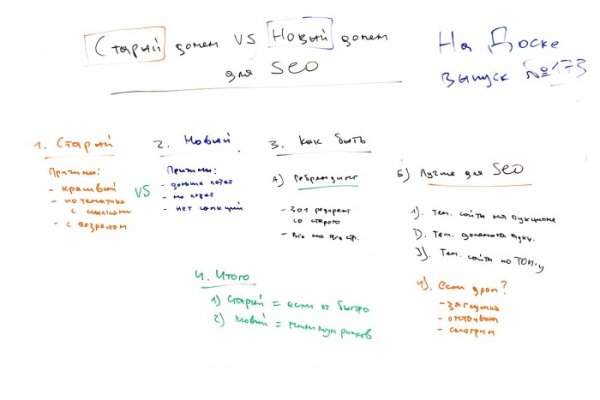 Старый домен VS Новый домен
для SEO
На Доске
выпуск №173
1. Старый
Причины:
- красивый
- по тематике
с ссылками
- с возрастом
VS
2. Новый
Причины:
- дольше
-
- нет санкций
3. Как быть
А) Ребрендинг
- 301 редирект
со старого
- Все на все стр.
Б) Лучше для SEO
1). Тем. сайты на аукционе
2). Тем. домена
3). Тем. сайты по ТОП-у
4). Если дроп?
- заглушка
- отстаиваем
- смотрим
4. Итого
1) Старый = если ок быстро
2) Новый = минимум рисков